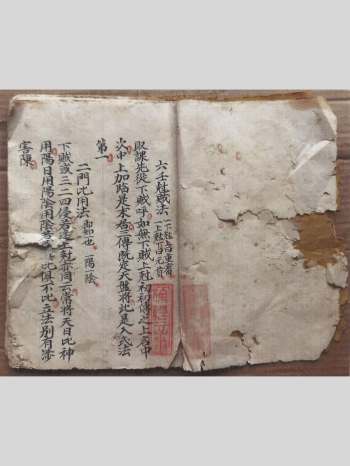 六壬尅賊法 一下尅上曰重審 一上尅下曰元首
取課先從下賊呼如無下賊上尅初初傳之上名中
次中上加臨是末宮三傳既定天盤將此是入式法
第一
二門比用法 即知一也 一陽一陰
下賊或三二四侵若逢上尅亦同云常將天日比神
用陽日用陽陰用陰若或俱比俱不比立法別有涉
害陳